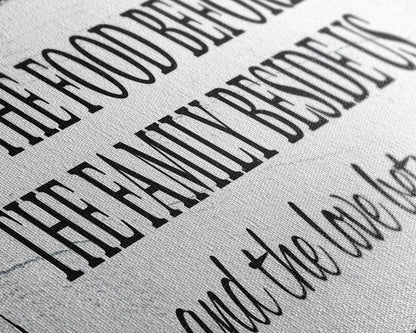 THE FOOD BEFORE
THE FAMILY BESIDE US
and the love